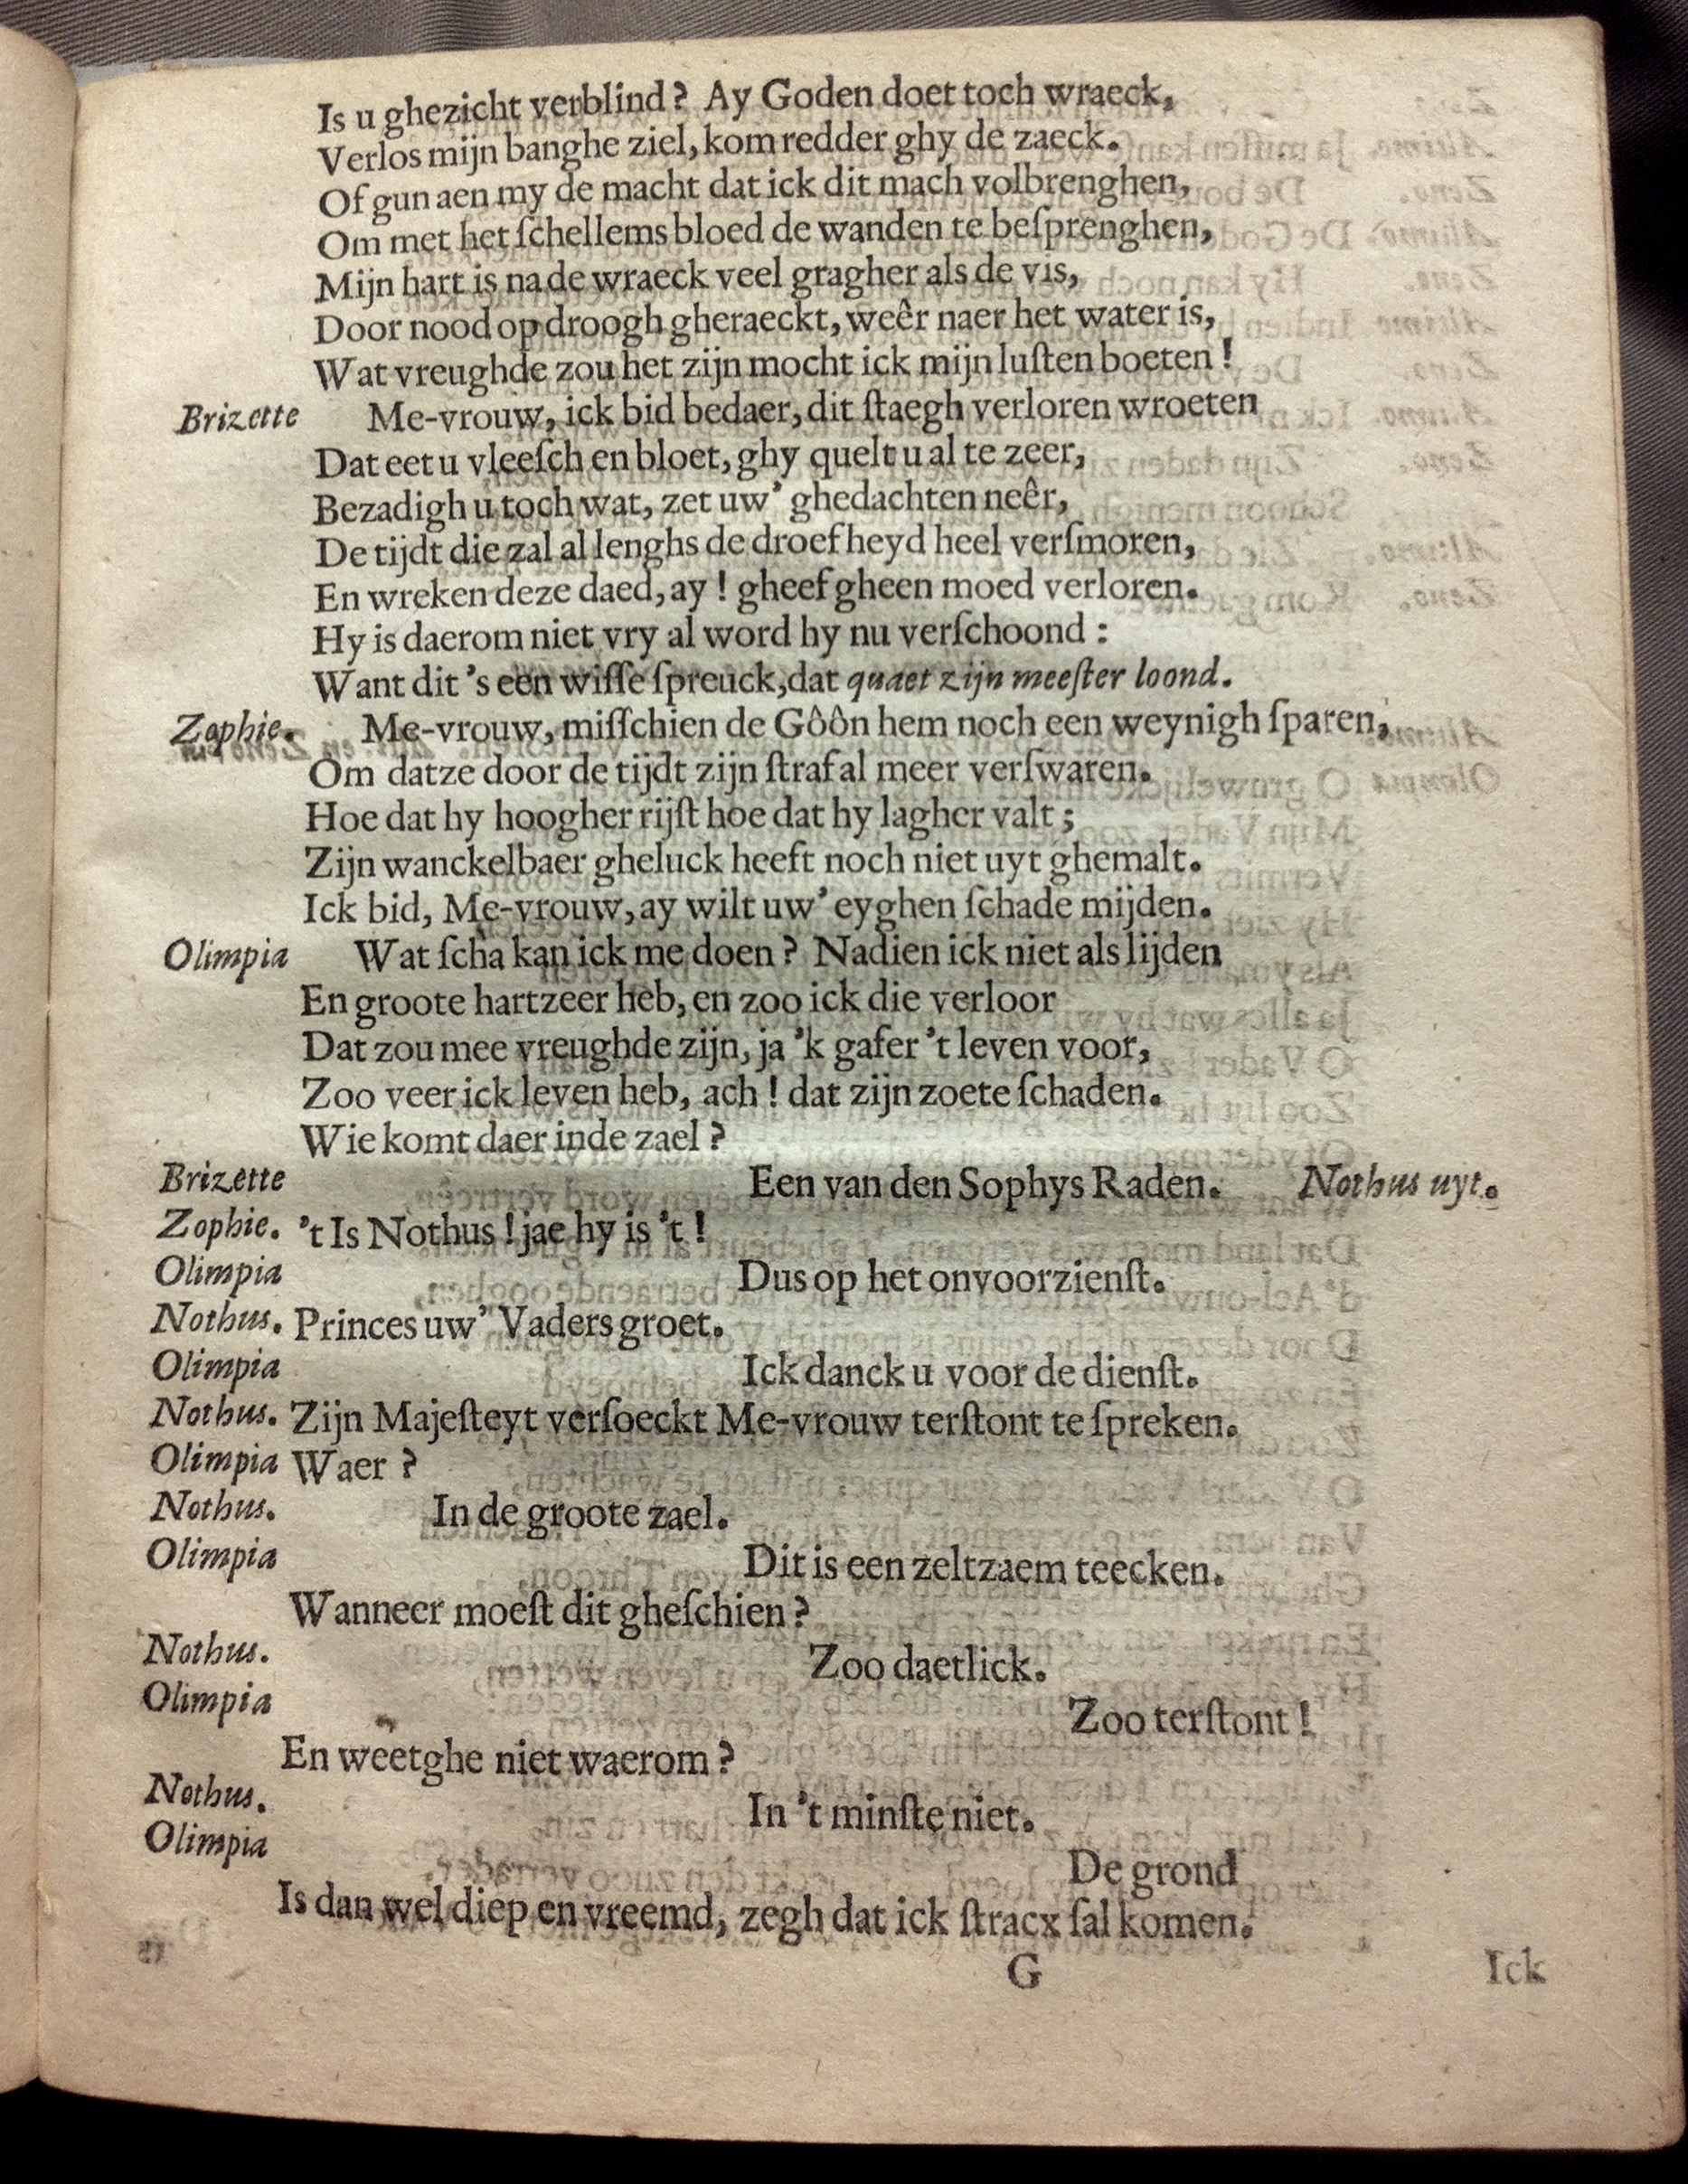 Is u ghezicht verblind? Ay Goden doet toch wraeck,
Verlos mijn banghe ziel, kom redder ghy de zaeck.
Of gun aen my de macht dat ick dit mach volbrenghen,
Om met het ſchellems bloed de wanden te beſprenghen,
Mijn hart is na de wraeck veel gragher als de vis,
Door nood op droogh gheraeckt, weêr naer het water is,
Wat vreughde zou het zijn mocht ick mijn luſten boeten!
Brizette Me-vrouw, ick bid bedaer, dit ſtaegh verloren wroeten
Dat eet u vleeſch en bloet, ghy quelt u al te zeer,
Bezadigh u toch wat, zet uw' ghedachten neêr,
De tijdt die zal al lenghs de droefheyd heel verſmoren,
En wreken deze daed, ay! gheef gheen moed verloren.
Hy is daerom niet vry al word hy nu verſchoond:
Want dit 's een wiſſe ſpreuck, dat quaet zijn meeſter loond.
Zophie. Me-vrouw, miſſchien de Gôôn hem noch een weynigh ſparen,
Om datze door de tijdt zijn ſtraf al meer verſwaren.
Hoe dat hy hoogher rijſt hoe dat hy lagher valt;
Zijn wanckelbaer gheluck heeft noch niet uyt ghemalt.
Ick bid, Me-vrouw, ay wilt uw' eyghen ſchade mijden.
Olimpia Wat ſcha kan ick me doen? Nadien ick niet als lijden
En groote hartzeer heb, en zoo ick die verloor
Dat zou mee vreughde zijn, ja 'k gafer 't leven voor,
Zoo veer ick leven heb, ach! dat zijn zoete ſchaden.
Wie komt daer inde zael?
Brizette Een van den Sophys Raden. Nothus uyt.
Zophie. 't Is Nothus! jae hy is 't!
Olimpia Dus op het onvoorzienſt.
Nothus. Princes uw' Vaders groet.
Olimpia Ick danck u voor de dienſt.
Nothus. Zijn Majeſteyt verſoeckt Me-vrouw terſtont te ſpreken.
Olimpia Waer?
Nothus. In de groote zael.
Olimpia Dit is een zeltzaem teecken.
Wanneer moeſt dit gheſchien?
Nothus. Zoo daetlick.
Olimpia Zoo terſtont!
En weetghe niet waerom?
Nothus. In 't minſte niet.
Olimpia De grond
Is dan wel diep en vreemd, zegh dat ick ſtracx ſal komen.
G Ick